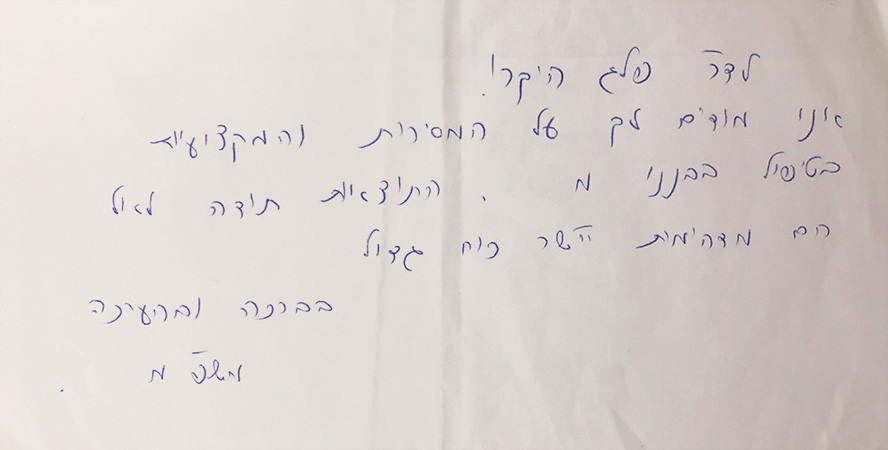 לדר' פלג היקר!
אנו מודים לך על המסירות והמקצועיות
בטיפול בבננו מ . התוצאות תודה לאול
הם מדהימות יישר כוח גדול
בברכה ובהערכה
משפ' מ